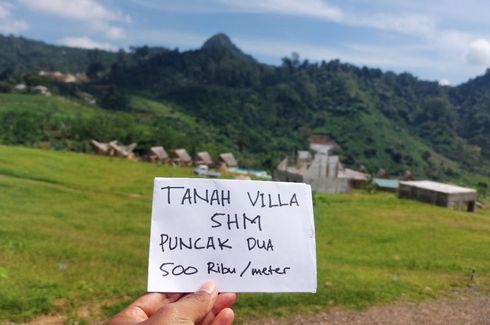 TANAH VILLA
SHM
PUNCAK DUA
500 Ribu/meter